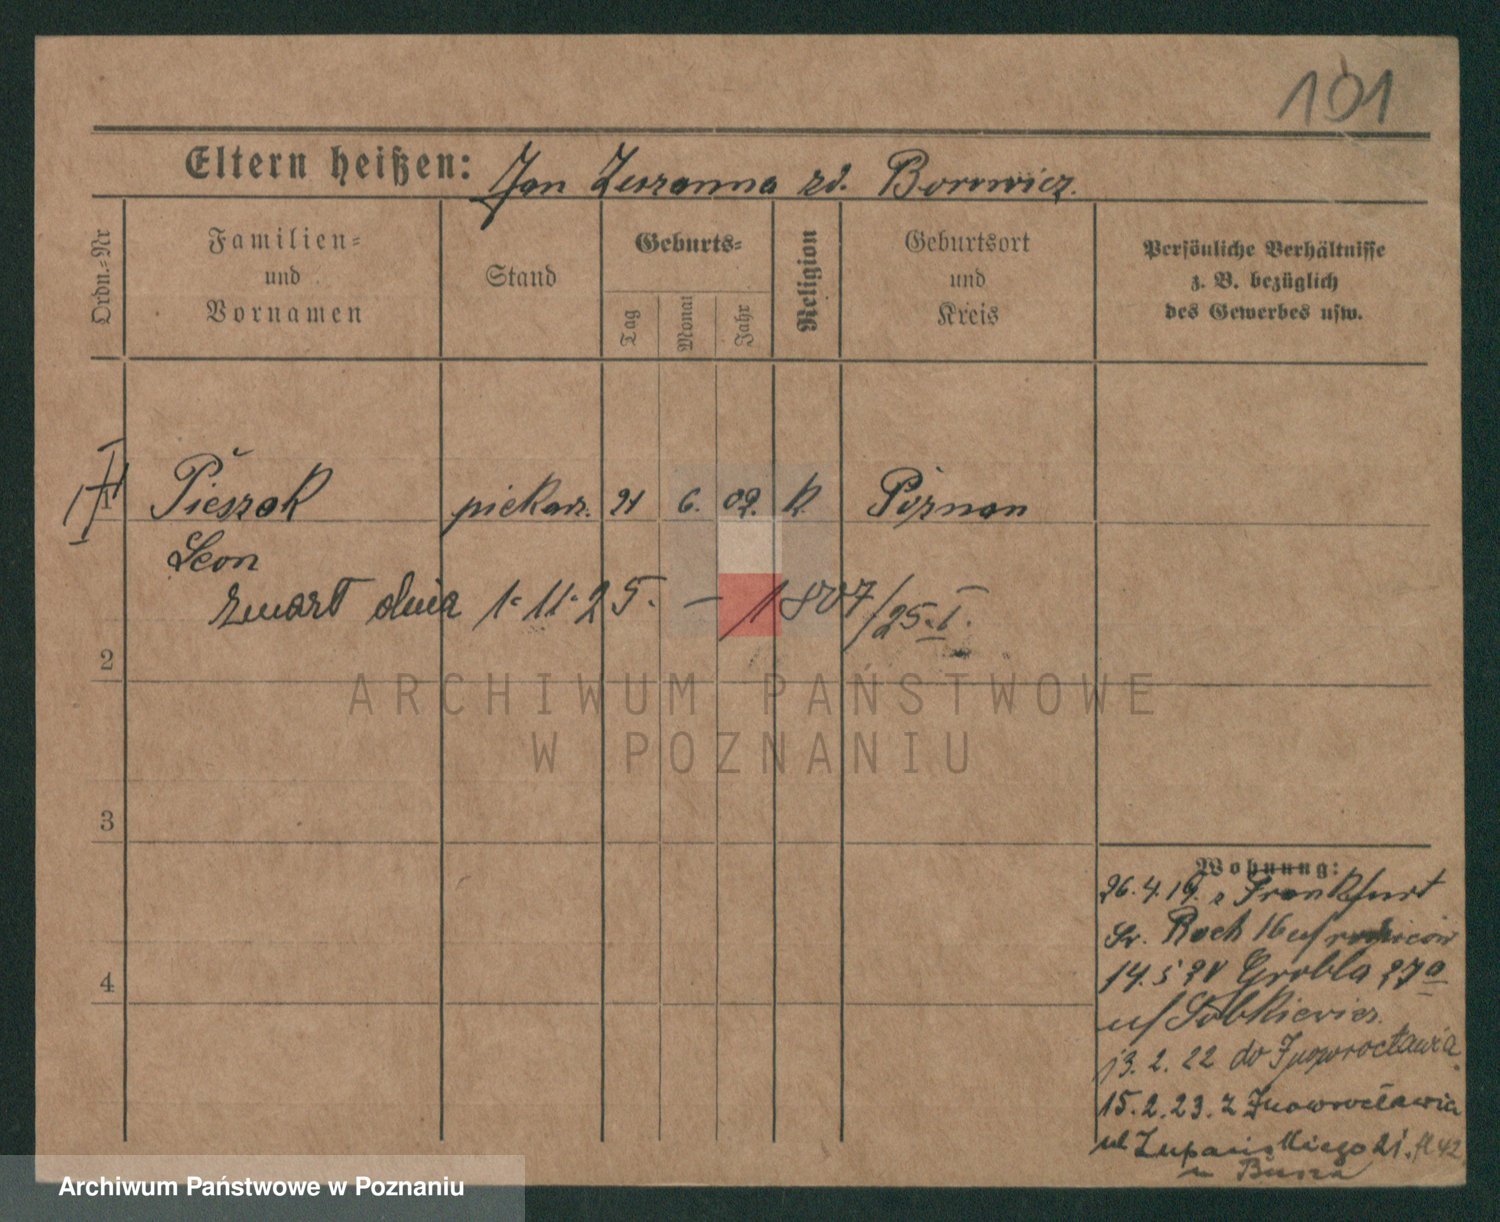 101
Eltern heißen: Jan Zuzanna zd. Borowicz.
Ordn.-Nr
Familien- und Vornamen
Stand
Geburts-
Tag
Monat
Jahr
Religion
Geburtsort und Kreis
Persönliche Verhältnisse
z. B. bezüglich
des Gewerbes usw.
1 Pieszak piekarz. 21 6. 02. k. Poznan
Leon
zmarł dnia 1.11.25. – 1807/25.I.
2
3
4
Wohnung:
26.4.19. z Frankfurt
Sw. Roch 16 u/ rodziców
14.5 21 Grobla 27a
u/ Sobkiewicz.
13.2.22 do Inowrocławia.
15.2.23. z Inowrocławia
ul Łupańskiego 21.
ARCHIWUM PAŃSTWOWE
W POZNANIU
Archiwum Państwowe w Poznaniu